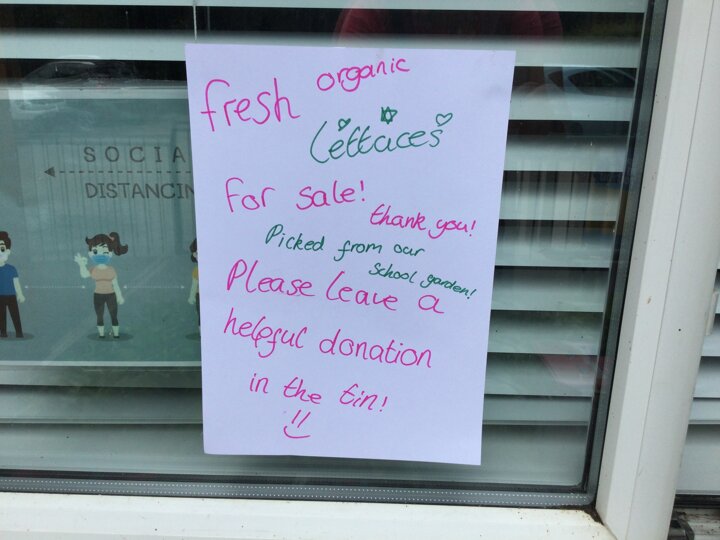 fresh organic
lettuces
for sale!
thank you!
Picked from our
school garden!
Please leave a
helpful donation
in the tin!
SOCIA
DISTANCIN